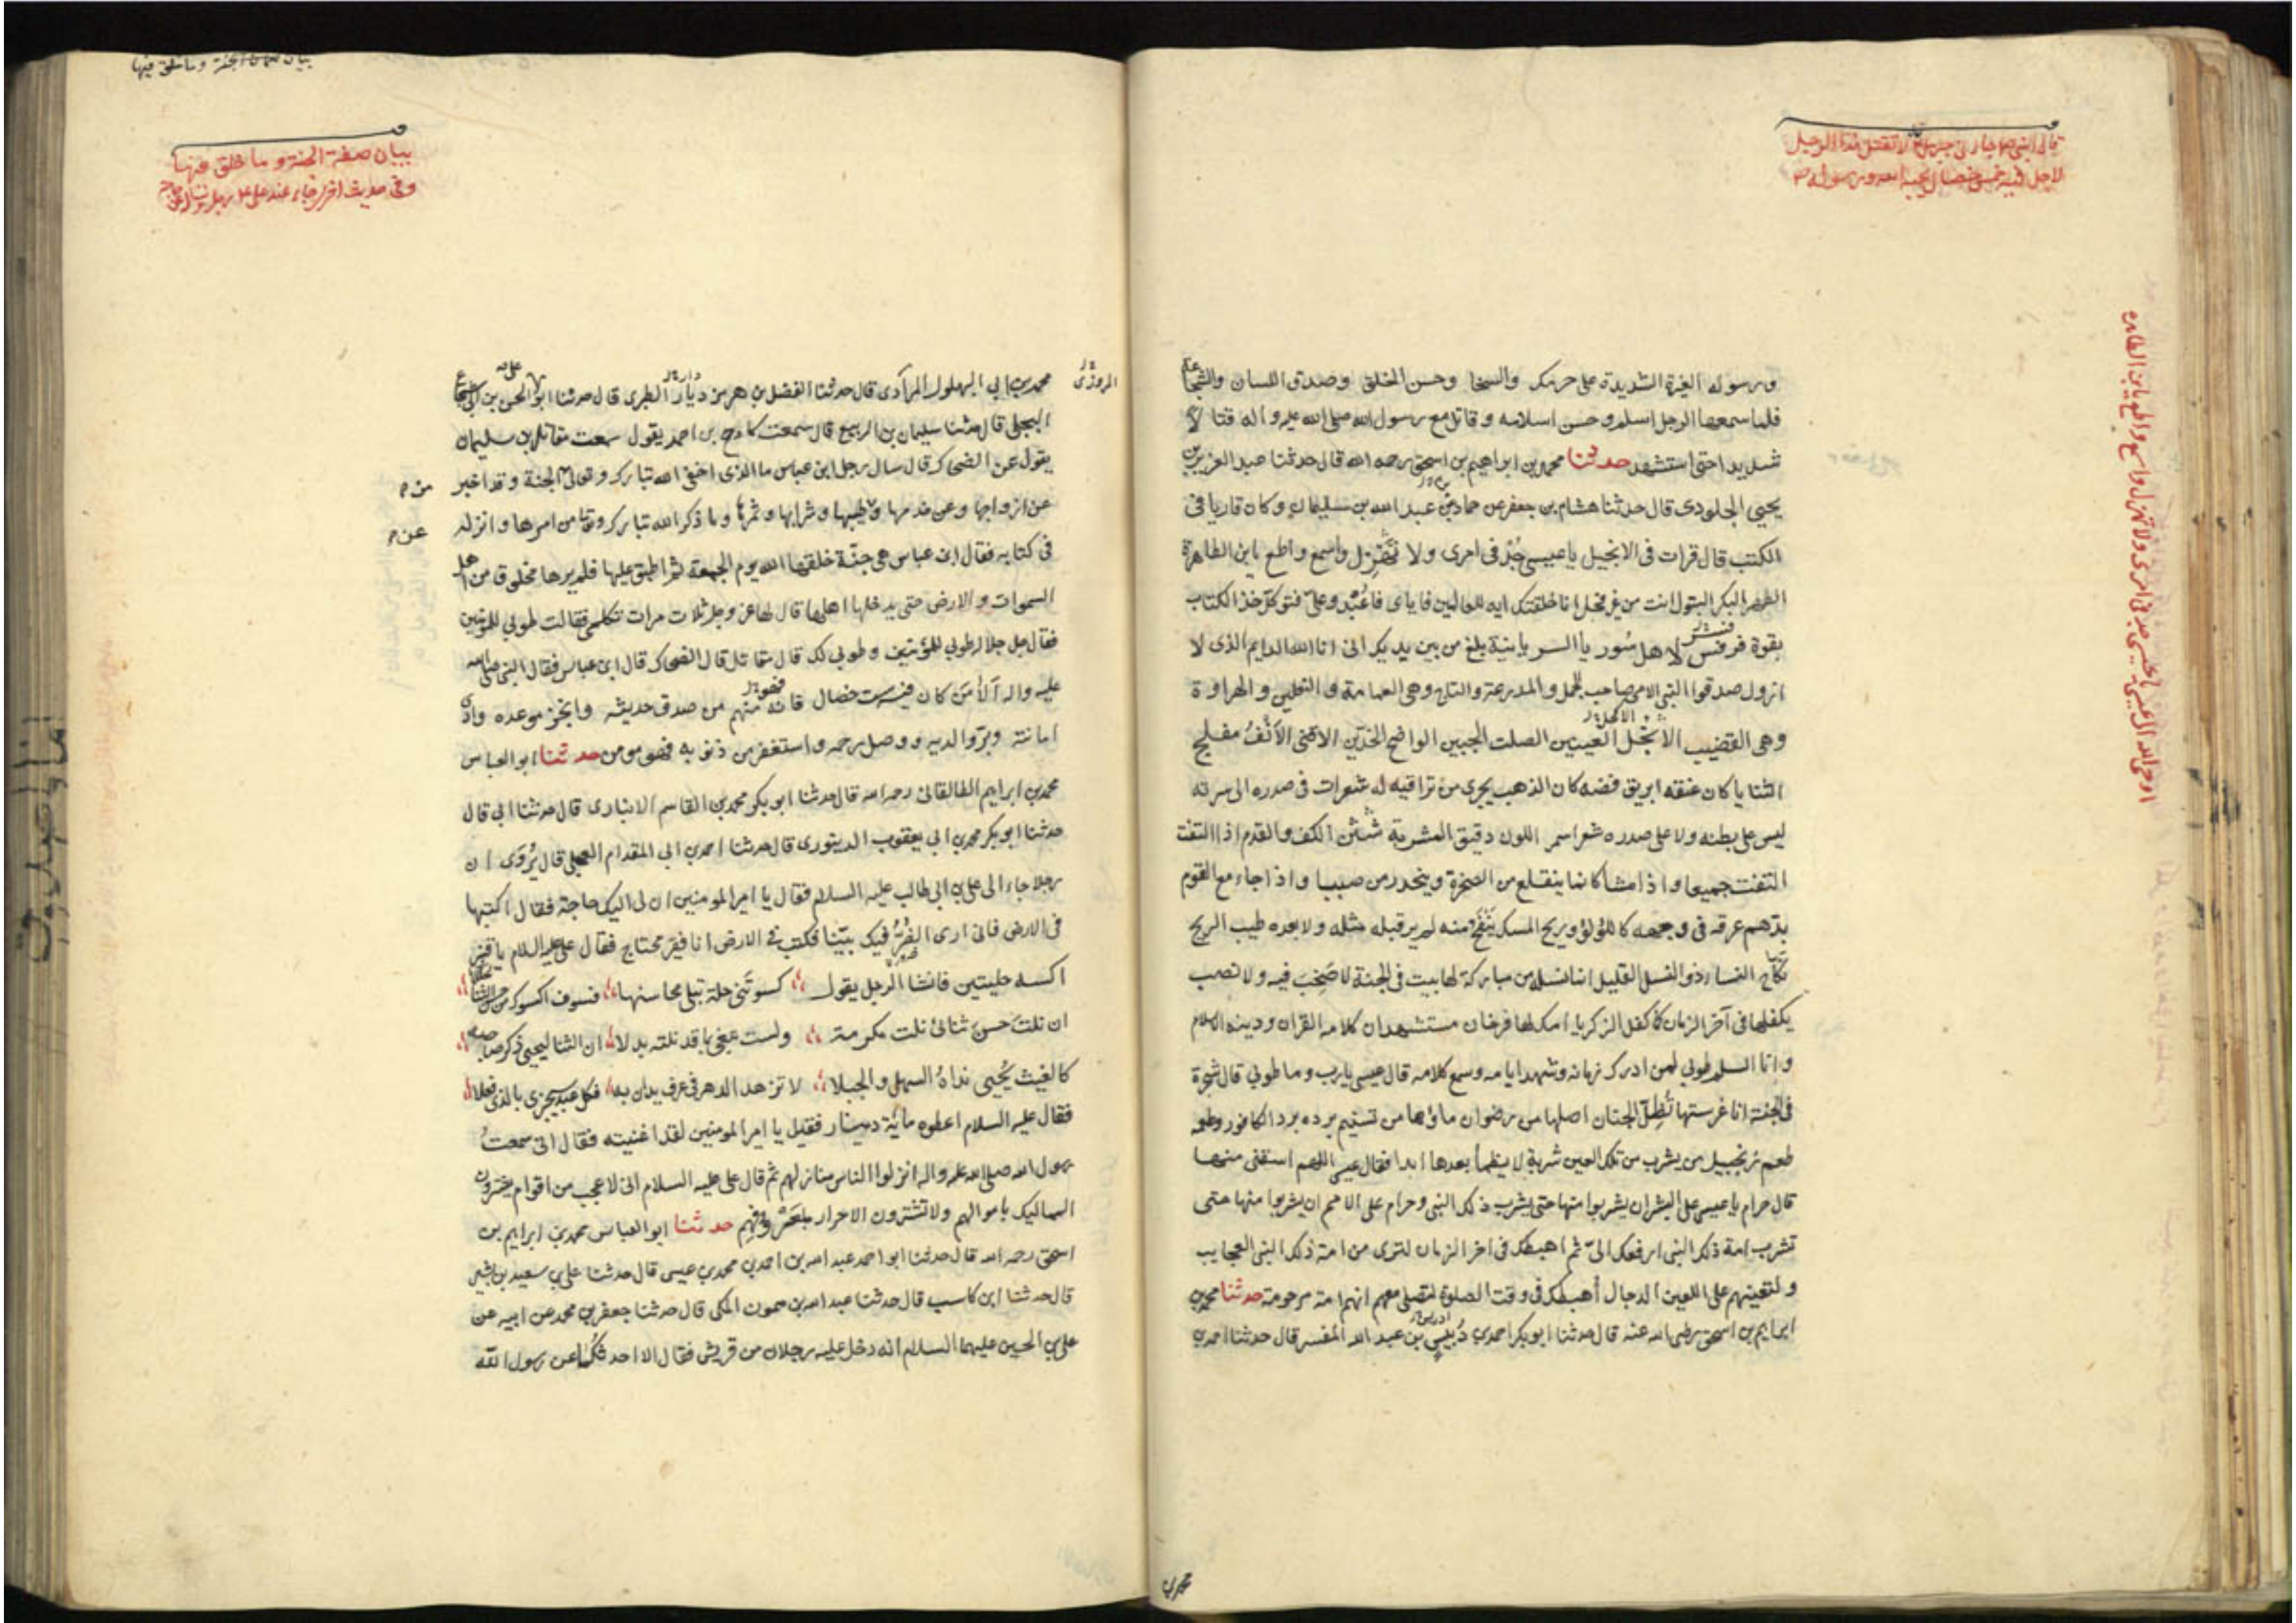 ورسوله الغيرة الشديدة على حرمك والسخا وحسن الخلق وصدق اللسان والشجاعة
فلما سمعها الرجل اسلم وحسن اسلامه وقاتل مع رسول الله صلى الله عليه واله قتالا
شديدا حتى استشهد حدثنا محمد بن ابراهيم بن اسحق رحمه الله قال حدثنا عبد العزيز بن
يحيى الجلودى قال حدثنا هشام بن جعفر عن حماد عن عبد الله بن سليمان وكان قاريا فى
الكتب قال قرات فى الانجيل يا عيسى جُدّ فى امرى ولا تَهْزِل واسمع واطع يا بن الطاهرة
الطهر البكر البتول انت من غير فحل انا خلقتك ايه للعالمين فاياى فاعْبُد وعلىّ فتوكل خذ الكتاب
بقوة فسر لاهل سُور يا السريانية بلغ من بين يديك انى انا الله الدايم الذى لا
ازول صدقوا النبى الامى صاحب الجمل والمدرعة والتاج وهى العمامة والنعلين والهراوة
وهى القضيب الانجل العينين الصلت الجبين الواضح الخدين الاقنى الانف مفلج
الثنايا كان عنقه ابريق فضه كان الذهب يجرى من تراقيه له شعرات فى صدره الى سرته
ليس على بطنه ولا على صدره شعر اسمر اللون دقيق المسربة شَثن الكف والقدم اذا التفت
التفت جميعا واذا مشا كانما ينقلع من الصخرة وينحدر من صبب واذا جاء مع القوم
بذهم عرقه فى وجهه كاللؤلؤ وريح المسك ينفح منه لم ير قبله مثله ولا بعده طيب الريح
نكاح النسا ذو النسل القليل انما نسله من مباركة لها بيت فى الجنة لا صَخَبَ فيه ولا نصب
يكفلها فى آخر الزمان كما كفل الزكريا امك لها فرخان مستشهدان كلامه القران ودينه الاسلام
وانا السلم طوبي لمن ادرك زمانه وشهد ايامه وسمع كلامه قال عيسى يا رب وما طوبي قال شجرة
فى الجنة انا غرستها تُظِلّ الجنان اصلها من رضوان ماؤها من تسنيم برده برد الكافور وطعمه
طعم زنجبيل من يشرب من تلك العين شربة لا يظمأ بعدها ابدا فقال عيسى اللهم اسقنى منها
قال حرام يا عيسى على البشر ان يشربوا منها حتى يشرب ذلك النبى وحرام على الامم ان يشربوا منها حتى
تشرب امة ذلك النبى ارفعك الىّ ثم اهبطك فى اخر الزمان لترى من امة ذلك النبى العجايب
ولتعينهم على اللعين الدجال أهبطك فى وقت الصلوة لتصلى معهم انهم امة مرحومة حدثنا محمد بن
ابراهيم بن اسحق رضى الله عنه قال حدثنا ابو بكر احمد بن عبد الله المفسر قال حدثنا احمد بن
اوحى الله الى عيسى يا عيسى جد فى امرى ولا تهزل واسمع واطع يا بن الطاهرة
بيان صفة الجنة وما خلق فيها
بيان صفة الجنة وما خلق فيها
محمد بن ابى البهلول المرادى قال حدثنا الفضل بن هرمز ديار الطبرى قال حدثنا ابو الحسن بن ابى شجاع
البجلى قال حدثنا سليمان بن الربيع قال سمعت كادح بن احمد يقول سمعت مقاتل بن سليمان
يقول عن الضحاك قال سال رجل ابن عباس ما الذى اخفى الله تبارك وتعالى الجنة وقد اخبر
عن ازواجها وعن خدمها وطيبها وشرابها وثمرها وما ذكر الله تبارك وتعا من امرها وانزله
فى كتابه فقال ابن عباس هى جنّة خلقها الله يوم الجمعة ثم اطبق عليها فلم يرها مخلوق من اهل
السموات والارض حتى يدخلها اهلها قال لها عز وجل ثلاث مرات تكلمى فقالت طوبي للمؤمنين
فقال جل جلاله طوبي للمؤمنين وطوبي لك قال مقاتل قال الضحاك قال ابن عباس فقال النبى صلى الله
عليه واله آلا مَن كان فيه ست خصال فانه منهم من صدق حديثه وانجز موعده وادى
امانته وبرّ والديه ووصل رحمه واستغفر من ذنوبه فهو مومن حدثنا ابو العباس
محمد بن ابراهيم الطالقانى رحمه الله قال حدثنا ابو بكر محمد بن القاسم الانبارى قال حدثنا ابى قال
حدثنا ابو بكر محمد بن ابى يعقوب الدينورى قال حدثنا احمد بن ابى المقدام العجلى قال يُروَى ان
رجلا جاء الى على بن ابى طالب عليه السلام فقال يا امير المومنين ان لى اليك حاجة فقال اكتبها
فى الارض فانى ارى الضُرّ فيك بيّنا فكتب فى الارض انا فقير محتاج فقال على عليه السلام يا قنبر
اكسه حليتين فانشا الرجل يقول كسوتَنى حلة تبلى محاسنها فسوف اكسوك من حسن الثنا حللا
ان نلتَ حسن ثنائى نلت مكرمة ولست تبغى بما قد نلته بدلا ان الثنا ليحيى ذكر صاحبه
كالغيث يُحيى نداهُ السهل والجبلا لا تزهد الدهر فى عرف بدات به فكل عبد سيجزى بالذى فعلا
فقال عليه السلام اعطوه مائة دينار فقيل يا امير المومنين لقد اغنيته فقال انى سمعتُ
رسول الله صلى الله عليه واله انزلوا الناس منازلهم ثم قال على عليه السلام انى لاعجب من اقوام يشترون
المماليك باموالهم ولا تشترون الاحرار بمعروفهم حدثنا ابو العباس محمد بن ابراهيم بن
اسحق رحمه الله قال حدثنا ابو احمد عبد الله بن احمد بن محمد بن عيسى قال حدثنا على بن سعيد بن بشير
قال حدثنا ابن كاسب قال حدثنا عبد الله بن ميمون المكى قال حدثنا جعفر بن محمد عن ابيه عن
على بن الحسين عليهما السلام انه دخل عليه رجلان من قريش فقال الا احدثكما عن رسول الله